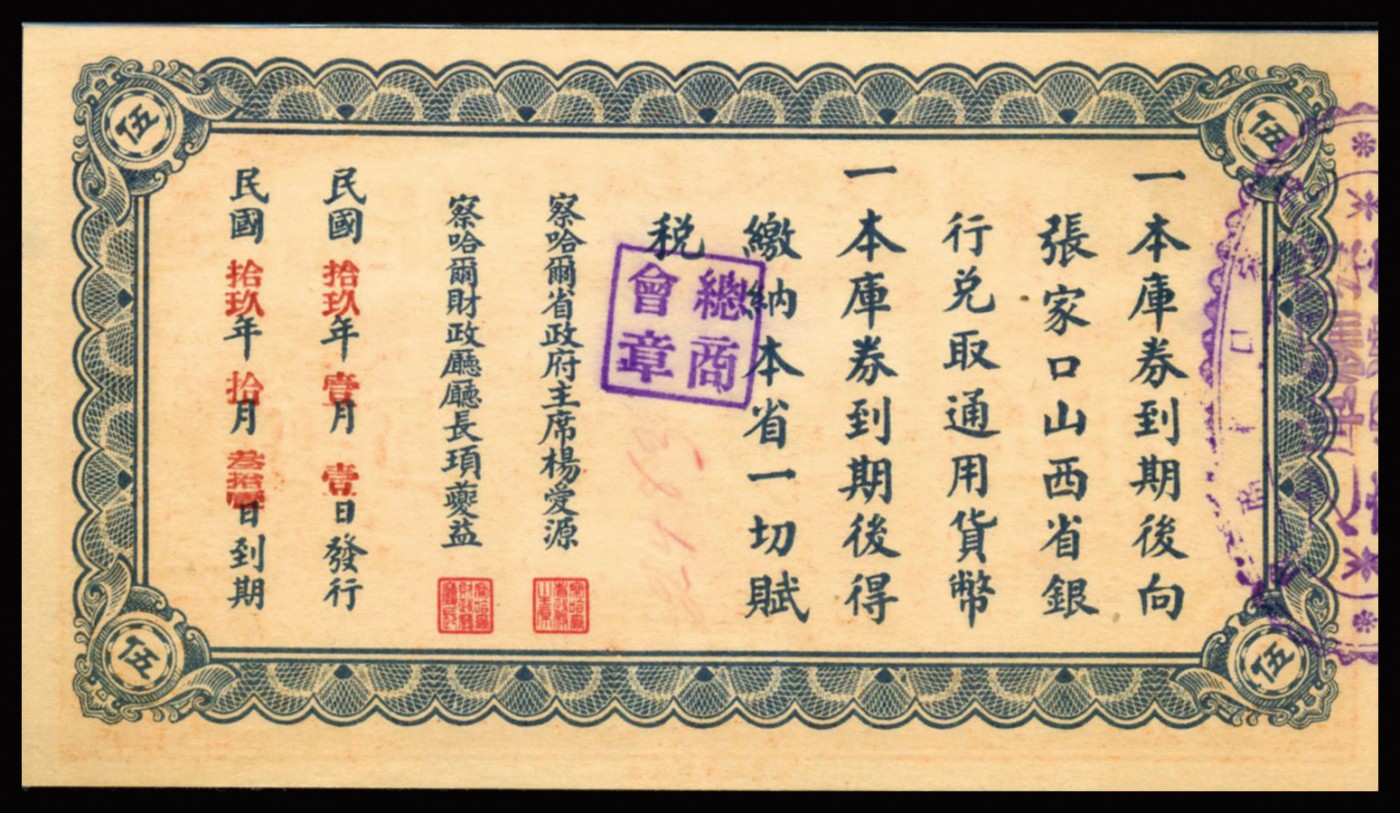 一本庫券到期後向
張家口山西省銀
行兑取通用貨幣
一本庫券到期後得
繳納本省一切賦
税
察哈爾省政府主席楊愛源
察哈爾財政廳廳長頊夔益
民國拾玖年壹月壹日發行
民國拾玖年拾月叁拾壹日到期
總商
會章
伍
伍
伍
伍